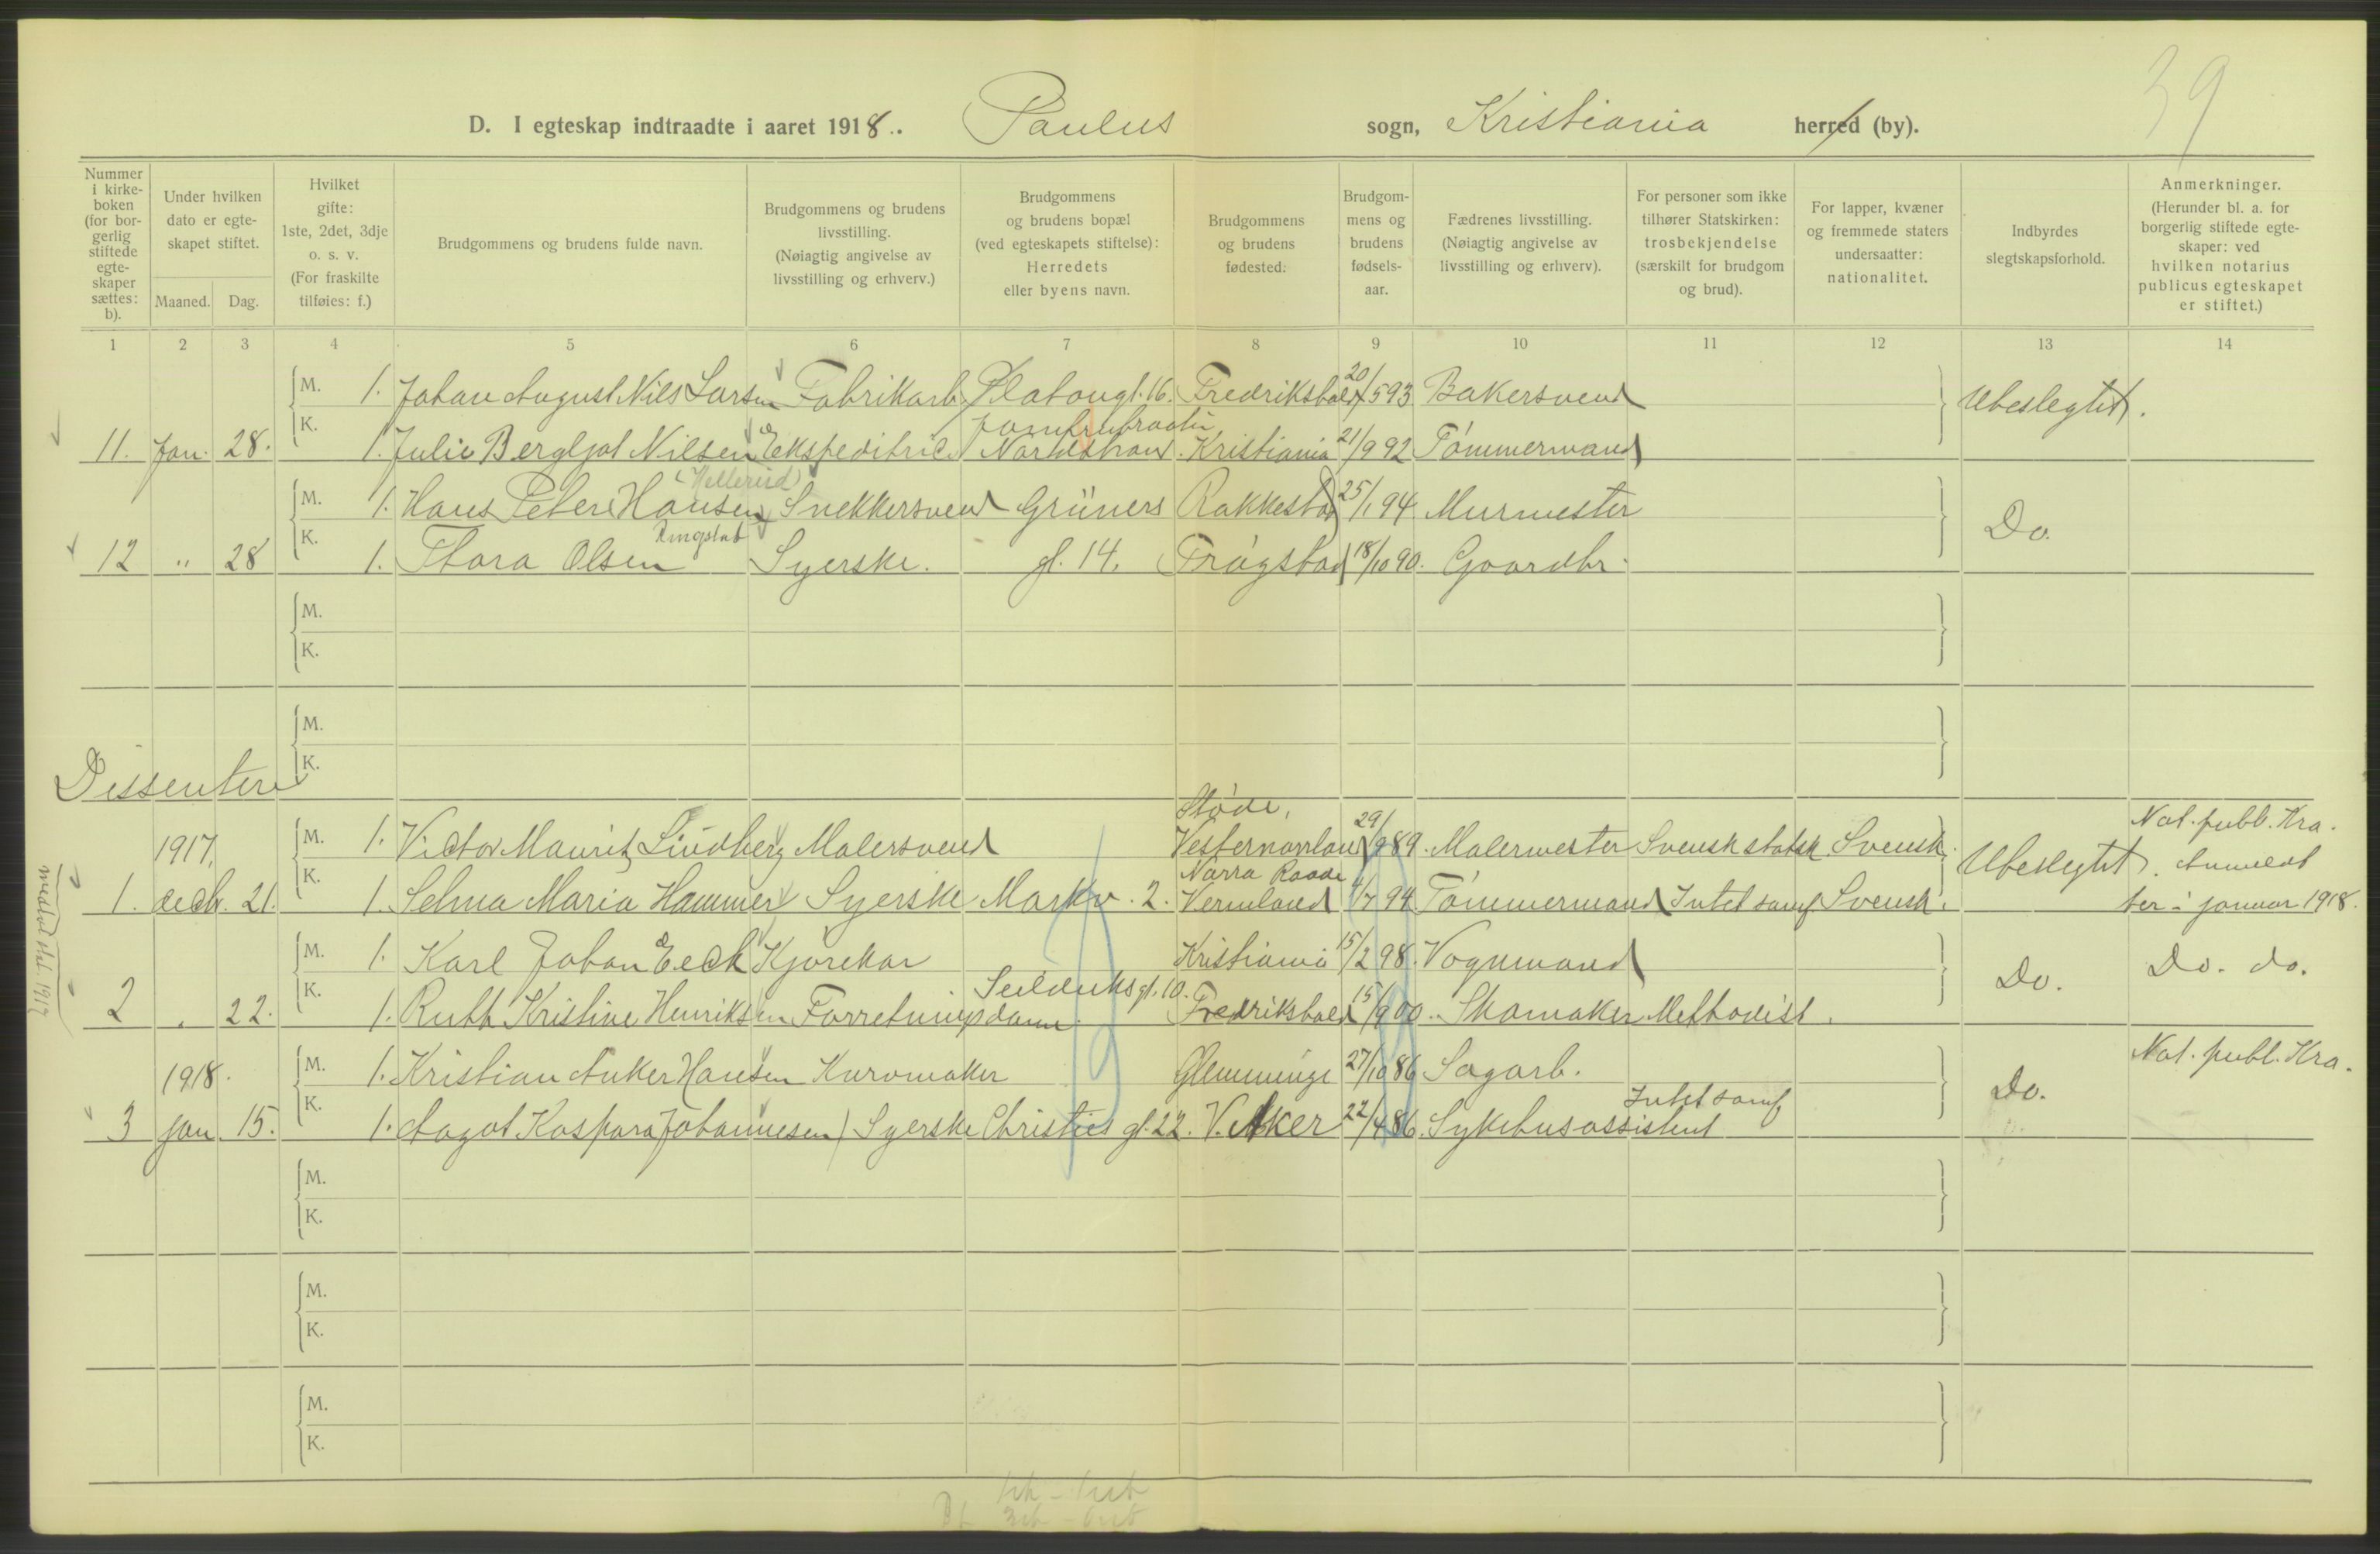 39
D. I egteskap indtraadte i aaret 1918. Paulus sogn, Kristiania herred (by).
Nummer i kirkeboken (for borgerlig stiftede egteskaper sættes: b).
Under hvilken dato er egteskapet stiftet.
Maaned. Dag.
Hvilket gifte: 1ste, 2det, 3dje o. s. v. (For fraskilte tilføies: f.)
Brudgommens og brudens fulde navn.
Brudgommens og brudens livsstilling. (Nøiagtig angivelse av livsstilling og erhverv.)
Brudgommens og brudens bopæl (ved egteskapets stiftelse): Herredets eller byens navn.
Brudgommens og brudens fødested.
Brudgommens og brudens fødselsaar.
Fædrenes livsstilling. (Nøiagtig angivelse av livsstilling og erhverv).
For personer som ikke tilhører Statskirken: trosbekjendelse (særskilt for brudgom og brud).
For lapper, kvæner og fremmede staters undersaatter: nationalitet.
Indbyrdes slegtskapsforhold.
Anmerkninger. (Herunder bl. a. for borgerlig stiftede egteskaper: ved hvilken notarius publicus egteskapet er stiftet.)
1 2 3 4 5 6 7 8 9 10 11 12 13 14
M. 1. Johan August Nils Larsen Fabrikarb. Platougt. 16. Fredrikshald 20/5 93 Bakersvend Ubeslegtet.
Jomfrubraaten
K. 11. Jan. 28. 1. Julie Bergljot Nilsen Ekspeditrice Nordstrand. Kristiania 21/9 92 Tømmermand
(Hellerud)
M. 1. Hans Peter Hansen Snekkersvend Grüners Rakkestad 25/1 94 Murmester Do.
Ringstab
K. 12 " 28 1. Thora Olsen Syerske. gt. 14. Trøgstad 18/10 90. Gaardbr.
M.
K.
M.
K.
Dissentere
Støde,
1917. M. 1. Victor Mauritz Lindberg Malersvend Vesternorrland 29/9 89. Malermester Svensk statsk. Svensk. Ubeslegtet. Not. publ. Kra. Anmeldt
Norra Raade
K. 1. decbr. 21. 1. Selma Maria Hammer Syerske Markv. 2. Vermland 4/7 94 Tømmermand Intet samf. Svensk. ter i januar 1918.
M. 1. Karl Johan Eeck Kjørekar Kristiania 15/2 98. Vognmand Do. Do. do.
Seilduksgt. 10.
K. 2 " 22. 1. Ruth Kristine Henriksen Forretningsdame Fredrikshald 15/9 00. Skomaker Methodist.
1918. M. 1. Kristian Anker Hansen Kurvmaker Glemminge 27/10 86 Sagarb. Do. Not. publ. Kra.
K. 3 jan. 15. 1. Aagot Kaspara Johannesen Syerske Christies gt. 22. V. Aker 22/4 86. Sykehusassistent Intet samf.
M.
K.
M.
K.
M.
K.